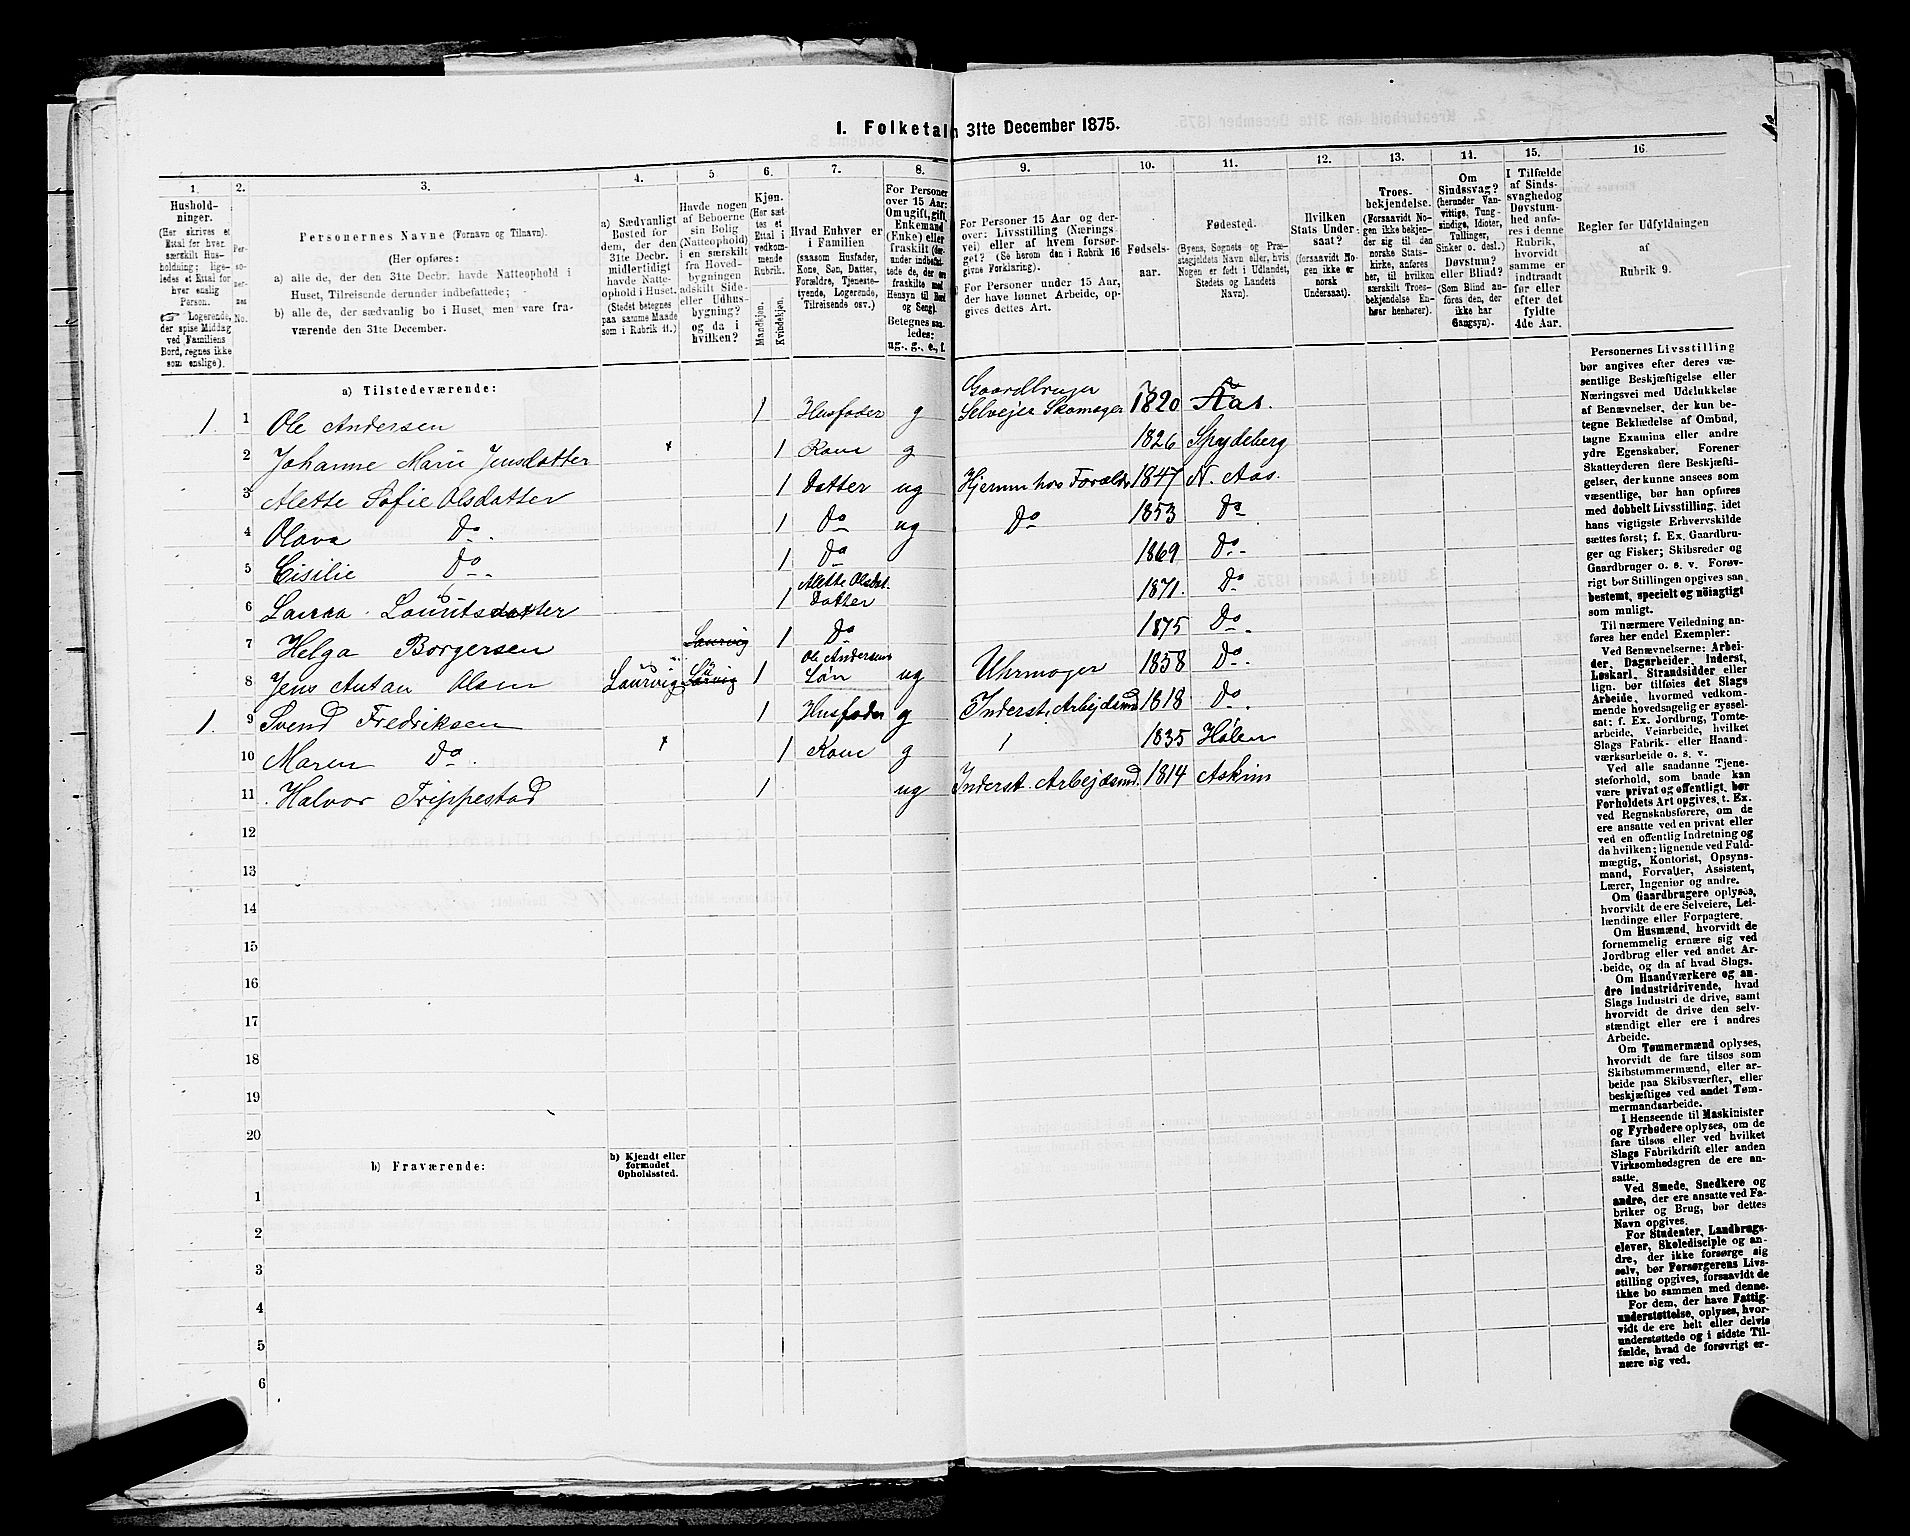 I. Folketal 31te December 1875.
1. 2. 3. 4. 5 6. 7. 8. 9. 10. 11. 12. 13. 14. 15. 16
Hushold-
ninger.
(Her skrives et
Ettal for hver
særskilt Hus-
holdning; lige-
ledes et Ettal for
hver enslig
Person.
☞ Logerende,
der spise Middag
ved Familiens
Bord, regnes ikke
som enslige).
Per-
so-
ner-
nes
No.
Personernes Navne (Fornavn og Tilnavn).
(Her opføres:
a) alle de, der den 31te Decbr. havde Natteophold i
Huset, Tilreisende derunder indbefattede;
b) alle de, der sædvanlig bo i Huset, men vare fra-
værende den 31te December.
a) Sædvanligt
Bosted for
dem, der den
31te Decbr.
midlertidigt
havde Natte-
ophold i Huset.
(Stedet betegnes
paa samme Maade
som i Rubrik 11.)
Havde nogen
af Beboerne
sin Bolig
(Natteophold)
i en særskilt
fra Hoved-
bygningen
adskilt Side-
eller Udhus-
bygning?
og da i
hvilken?
Kjøn.
(Her sæt-
tes et
Ettal i
vedkom-
mende
Rubrik.
Mandkjøn.
Kvindekjøn.
Hvad Enhver er
i Familien
(saasom Husfader,
Kone, Søn, Datter,
Forældre, Tjeneste-
tyende, Logerende,
Tilreisende osv.)
For Personer
over 15 Aar:
Om ugift, gift,
Enkemand
(Enke) eller
fraskilt (der-
under indbefat-
tede de, der ere
fraskilte med
Hensyn til Bord
og Seng).
Betegnes saa-
ledes:
ug., g., e., f.
For Personer 15 Aar og der-
over: Livsstilling (Nærings-
vei) eller af hvem forsør-
get? (Se herom den i Rubrik 16
givne Forklaring).
For Personer under 15 Aar,
der have lønnet Arbeide, op-
gives dettes Art.
Fødsels-
aar.
Fødested.
(Byens, Sognets og Præ-
stegjeldets Navn eller, hvis
Nogen er født i Udlandet,
Stedets og Landets
Navn).
Hvilken
Stats Under-
saat?
(forsaavidt No-
gen ikke er
norsk
Undersaat).
Troes-
bekjendelse.
(Forsaavidt No-
gen ikke bekjen-
der sig til den
norske Stats-
kirke, anføres
her, til hvilken
særskilt Troes-
bekjendelse En-
hver henhører).
Om
Sindssvag?
(herunder Van-
vittige, Tung-
sindige, Idioter,
Tullinger,
Sinker o. desl.)
Døvstum?
eller Blind?
(Som Blind an-
føres den, der
ikke har
Gangsyn).
I Tilfælde
af Sinds-
svaghed og
Døvstum-
hed anfø-
res i denne
Rubrik,
hvorvidt
samme er
indtraadt
før eller
efter det
fyldte
4de Aar.
Regler for Udfyldningen
af
Rubrik 9.
a) Tilstedeværende:
1. 1 Ole Andersen 1 Husfader g Gaardbruger Selveier Skomager 1820 Aas.
2 Johanne Marie Jensdatter 1 Kone g 1826 Spydeberg
3 Alette Sofie Olsdatter 1 Datter ug Hjemm hos Forældr 1847 N. Aas.
4 Olava Do 1 Do ug Do 1853 Do
5 Cisilie Do 1 Do 1869 Do
6 Lauritsdatter 1 Alette Olsdat. Datter 1871. Do
7 Helga Borgersen Laurvig 1 Do 1875 Do
8 Jens Antan Olsen Laurvig 1 Ole Andersens Søn ug Uhrmager 1858 Do
1. 9 Svend Fredriksen 1 Husfader g Inderst, Arbejdsmd 1818 Do
10 Maren Do 1 Kone g 1835 Hølen
11 Halvor Trippestad 1 ug Inderst. Arbejdsmd. 1814 Askim
12
13
14
15
16
17
18
19
20
b) Fraværende:
b) Kjendt eller
formodet
Opholdssted.
1
2
3
4
5
6
Personernes Livsstilling
bør angives efter deres væ-
sentlige Beskjæftigelse eller
Næringsvei med Udelukkelse
af Benævnelser, der kun be-
tegne Beklædelse af Ombud,
tagne Examina eller andre
ydre Egenskaber. Forener
Skatteyderen flere Beskjæfti-
gelser, der kunne ansees som
væsentlige, bør han opføres
med dobbelt Livsstilling, idet
hans vigtigste Erhvervskilde
sættes først; f. Ex. Gaardbru-
ger og Fisker; Skibsreder og
Gaardbruger o. s. v. Forøv-
rigt bør Stillingen opgives saa
bestemt, specielt og nøiagtigt
som muligt.
Til nærmere Veiledning an-
føres her endel Exempler:
Ved Benævnelserne: Arbei-
der, Dagarbeider, Inderst,
Løskarl, Strandsidder eller
lign. bør tilføies det Slags
Arbeide, hvormed vedkom-
mende hovedsagelig er syssel-
sat; f. Ex. Jordbrug, Tomte-
arbeide, Veiarbeide, hvilket
Slags Fabrik- eller Haand-
værksarbeide o. s. v.
Ved alle saadanne Tjene-
steforhold, som baade kan
være privat og offentligt, bør
Forholdets Art opgives, t. Ex.
ved Regnskabsførere, om de
ere ansatte ved en privat eller
ved en offentlig Indretning og
da hvilken; lignende ved Fuld-
mægtig, Kontorist, Opsyns-
mand, Forvalter, Assistent,
Lærer, Ingeniør og andre.
Om Gaardbrugere oplyses,
hvorvidt de ere Selveiere, Lei-
lændinge eller Forpagtere.
Om Husmænd, hvorvidt de
fornemmelig ernære sig ved
Jordbrug eller ved andet Ar-
beide, og da af hvad Slags.
Om Haandværkere og an-
dre Industridrivende, hvad
Slags Industri de drive, samt
hvorvidt de drive den selv-
stændigt eller ere i andres
Arbeide.
Om Tømmermænd oplyses,
hvorvidt de fare tilsøs som
Skibstømmermænd, eller ar-
beide paa Skibsværfter, eller
beskjæftiges ved andet Tøm-
mermandsarbeide.
I Henseende til Maskinister
og Fyrbødere oplyses, om de
fare tilsøs eller ved hvilket
Slags Fabrikdrift eller anden
Virksomhedsgren de ere an-
satte.
Ved Smede, Snedkere og
andre, der ere ansatte ved Fa-
briker og Brug, bør dettes
Navn opgives.
For Studenter, Landbrugs-
elever, Skoledisciple og an-
dre, der ikke forsørge sig
selv, bør Forsørgerens Livs-
stilling opgives, forsaavidt de
ikke bo sammen med denne.
For dem, der have Fattig-
understøttelse, oplyses, hvor-
vidt de ere helt eller delvis
understøttede og i sidste Til-
fælde, hvad de forøvrigt er-
nære sig ved.